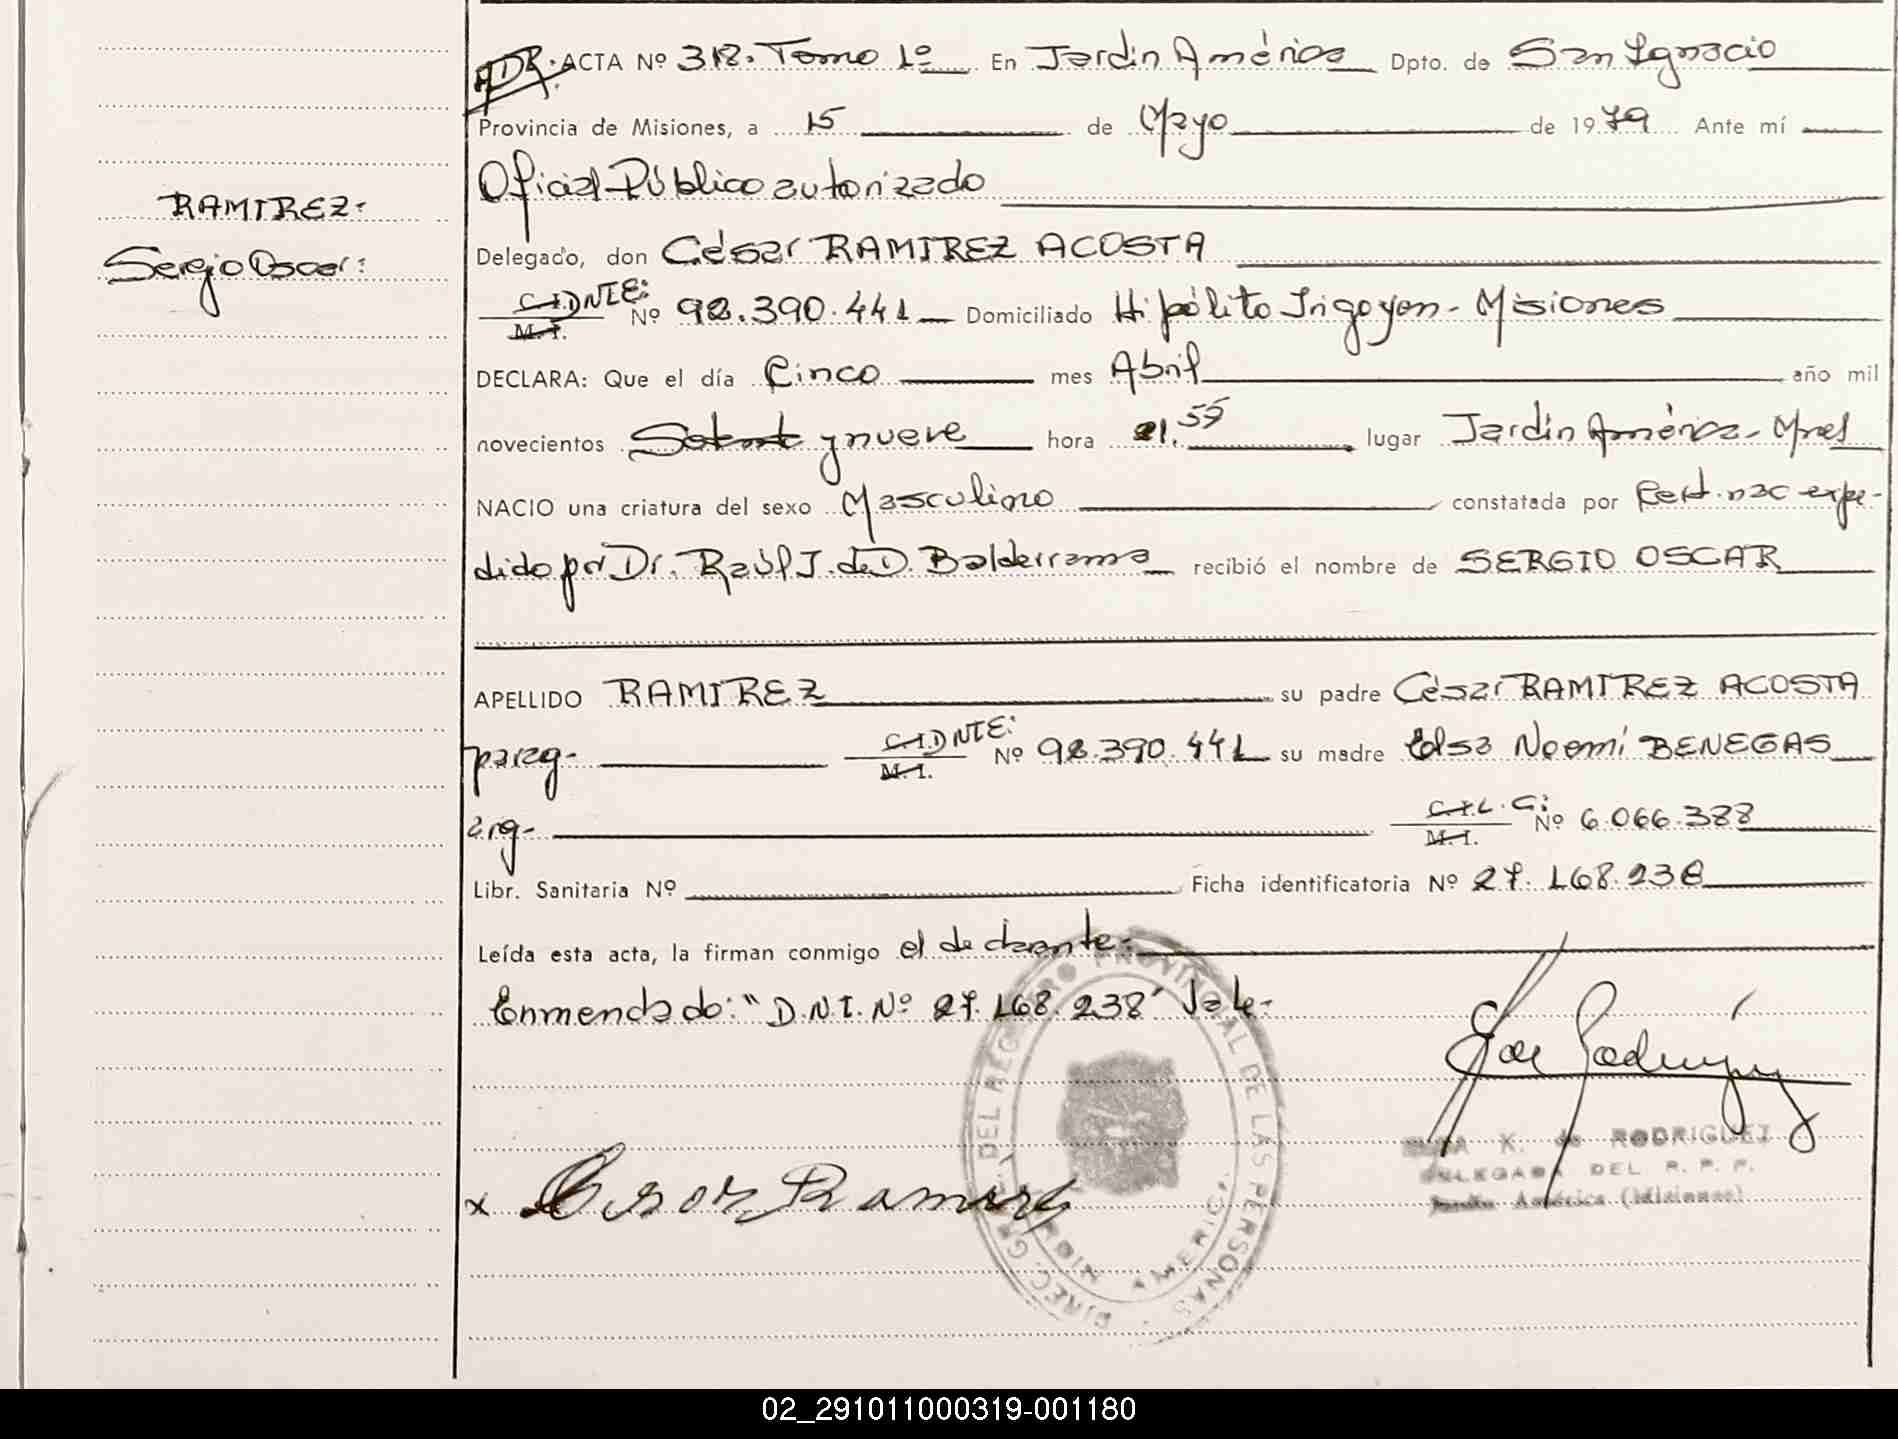 ADR. ACTA Nº 312. Tomo 1º En Jardin América Dpto. de San Ignacio
Provincia de Misiones, a 15 de Mayo de 1979 Ante mí
Oficial Público autorizado
RAMIREZ-
Delegado, don César RAMIREZ ACOSTA
Sergio Oscar:
C.I.DNTE: M.I. Nº 92.390.441 Domiciliado Hipólito Irigoyen - Misiones
DECLARA: Que el día Cinco mes Abril año mil
novecientos Setenta y nueve hora 21.55 lugar Jardín América - Mnes
NACIO una criatura del sexo Masculino constatada por Cert. nac expe-
dido por Dr. Raúl J. de D. Balderrama recibió el nombre de SERGIO OSCAR
APELLIDO RAMIREZ su padre César RAMIREZ ACOSTA
parag- C.I.DNTE: M.I. Nº 92.390.441 su madre Elsa Noemí BENEGAS
arg- C.I.L.C: M.I. Nº 6.066.388
Libr. Sanitaria Nº Ficha identificatoria Nº 27.168.238
Leída esta acta, la firman conmigo el declarante-
Enmendado: "D.N.I. Nº 27.168.238" Vale-
DIREC. GRAL. DEL REGISTRO PROVINCIAL DE LAS PERSONAS
JARDIN AMERICA
K. de RODRIGUEZ
DELEGADA DEL R. P. P.
Jardín América (Misiones)
x Cesar Ramirez
02_291011000319-001180